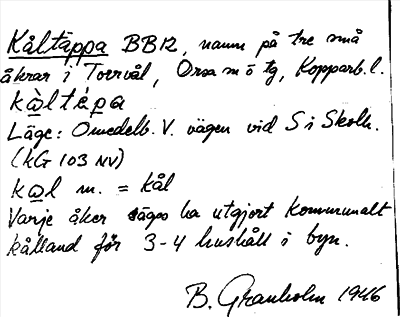 Kåltäppa BB12, namn på tre små
åkrar i Torrvål, Orsa sn ö tg, Kopparb. l.
kàltépa
Läge: Omedelb. V. vägen vid S i Skolh.
(KG 103 NV)
kọl m. = kål
Varje åker säges ha utgjort kommunalt
kålland för 3-4 hushåll i byn.
B. Granholm 1946